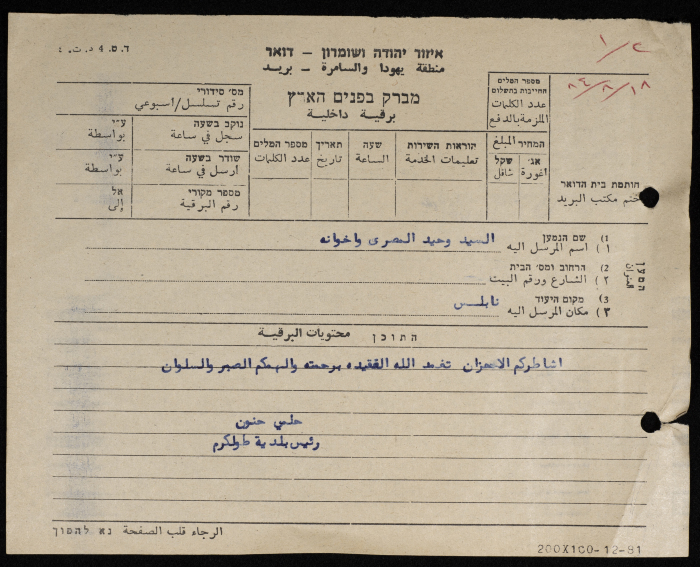 ד.ס. 4 ד.ת. :
איזור יהודה ושומרון – דואר
منطقة يهودا والسامرة – بريد
מברק בפנים הארץ
برقية داخلية
מס׳ סידורי
رقم تسلسل/اسبوعي
נוקב בשעה
سجل في ساعة
ע״י
بواسطة
שודר בשעה
أرسل في ساعة
ע״י
بواسطة
מספר מקורי
رقم البرقية
אל
إلى
מספר המלים
عدد الكلمات
תאריך
تاريخ
שעה
الساعة
הוראות השירות
تعليمات الخدمة
מספר המלים
החייבות בתשלום
عدد الكلمات
الملزمة بالدفع
המחיר المبلغ
שקל
شاقل
אג׳
اغورة
١/٢
٨٤/٨/١٨
חותמת בית הדואר
ختم مكتب البريد
המען
العنوان
1) שם הנמען
١ ) اسم المرسل اليه
السيد وحيد المصرى واخوانه
2) הרחוב ומס׳ הבית
٢ ) الشارع ورقم البيت
3) מקום היעוד
٣ ) مكان المرسل اليه
نابلس
התוכן محتويات البرقية
اشاطركم الاحزان تغمد الله الفقيده برحمته والهمكم الصبر والسلوان
حلمي حنون
رئيس بلدية طولكرم
الرجاء قلب الصفحة נא להפוך
200X100-12-81